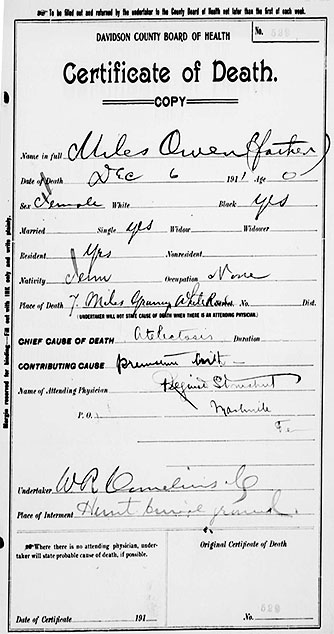 To be filled out and returned by the undertaker to the County Board of Health not later than the first of each week.
DAVIDSON COUNTY BOARD OF HEALTH
No. 529
Certificate of Death.
COPY
Name in full Miles Owen (father)
Date of Death Dec 6 1911 Age 0
Sex Female White Black yes
Married Single yes Widow Widower
Resident Yes Nonresident
Nativity Tenn Occupation None
Place of Death 7 Miles Granny White Road No. Dist.
(UNDERTAKER WILL NOT STATE CAUSE OF DEATH WHEN THERE IS AN ATTENDING PHYSICIAN.)
CHIEF CAUSE OF DEATH Duration
CONTRIBUTING CAUSE
Name of Attending Physician
P. O. Nashville
Undertaker W R Cornelius
Place of Interment Hunt burial ground
Where there is no attending physician, undertaker will state probable cause of death, if possible.
Date of Certificate 191
Original Certificate of Death
No. 529
Margin reserved for binding—Fill out with INK only and write plainly.